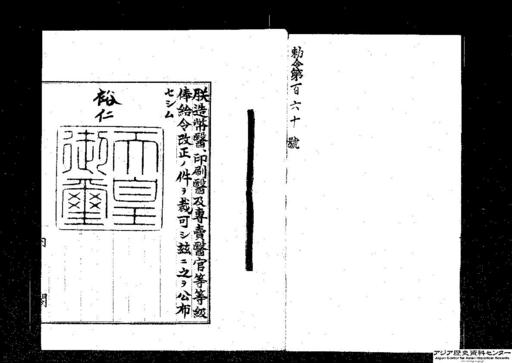 勅令第百六十號
朕造幣醫、印刷醫及專賣醫官等等級
俸給令改正ノ件ヲ裁可シ玆ニ之ヲ公布
セシム
裕仁
天皇
御璽
内閣
アジア歴史資料センター
Japan Center for Asian Historical Records